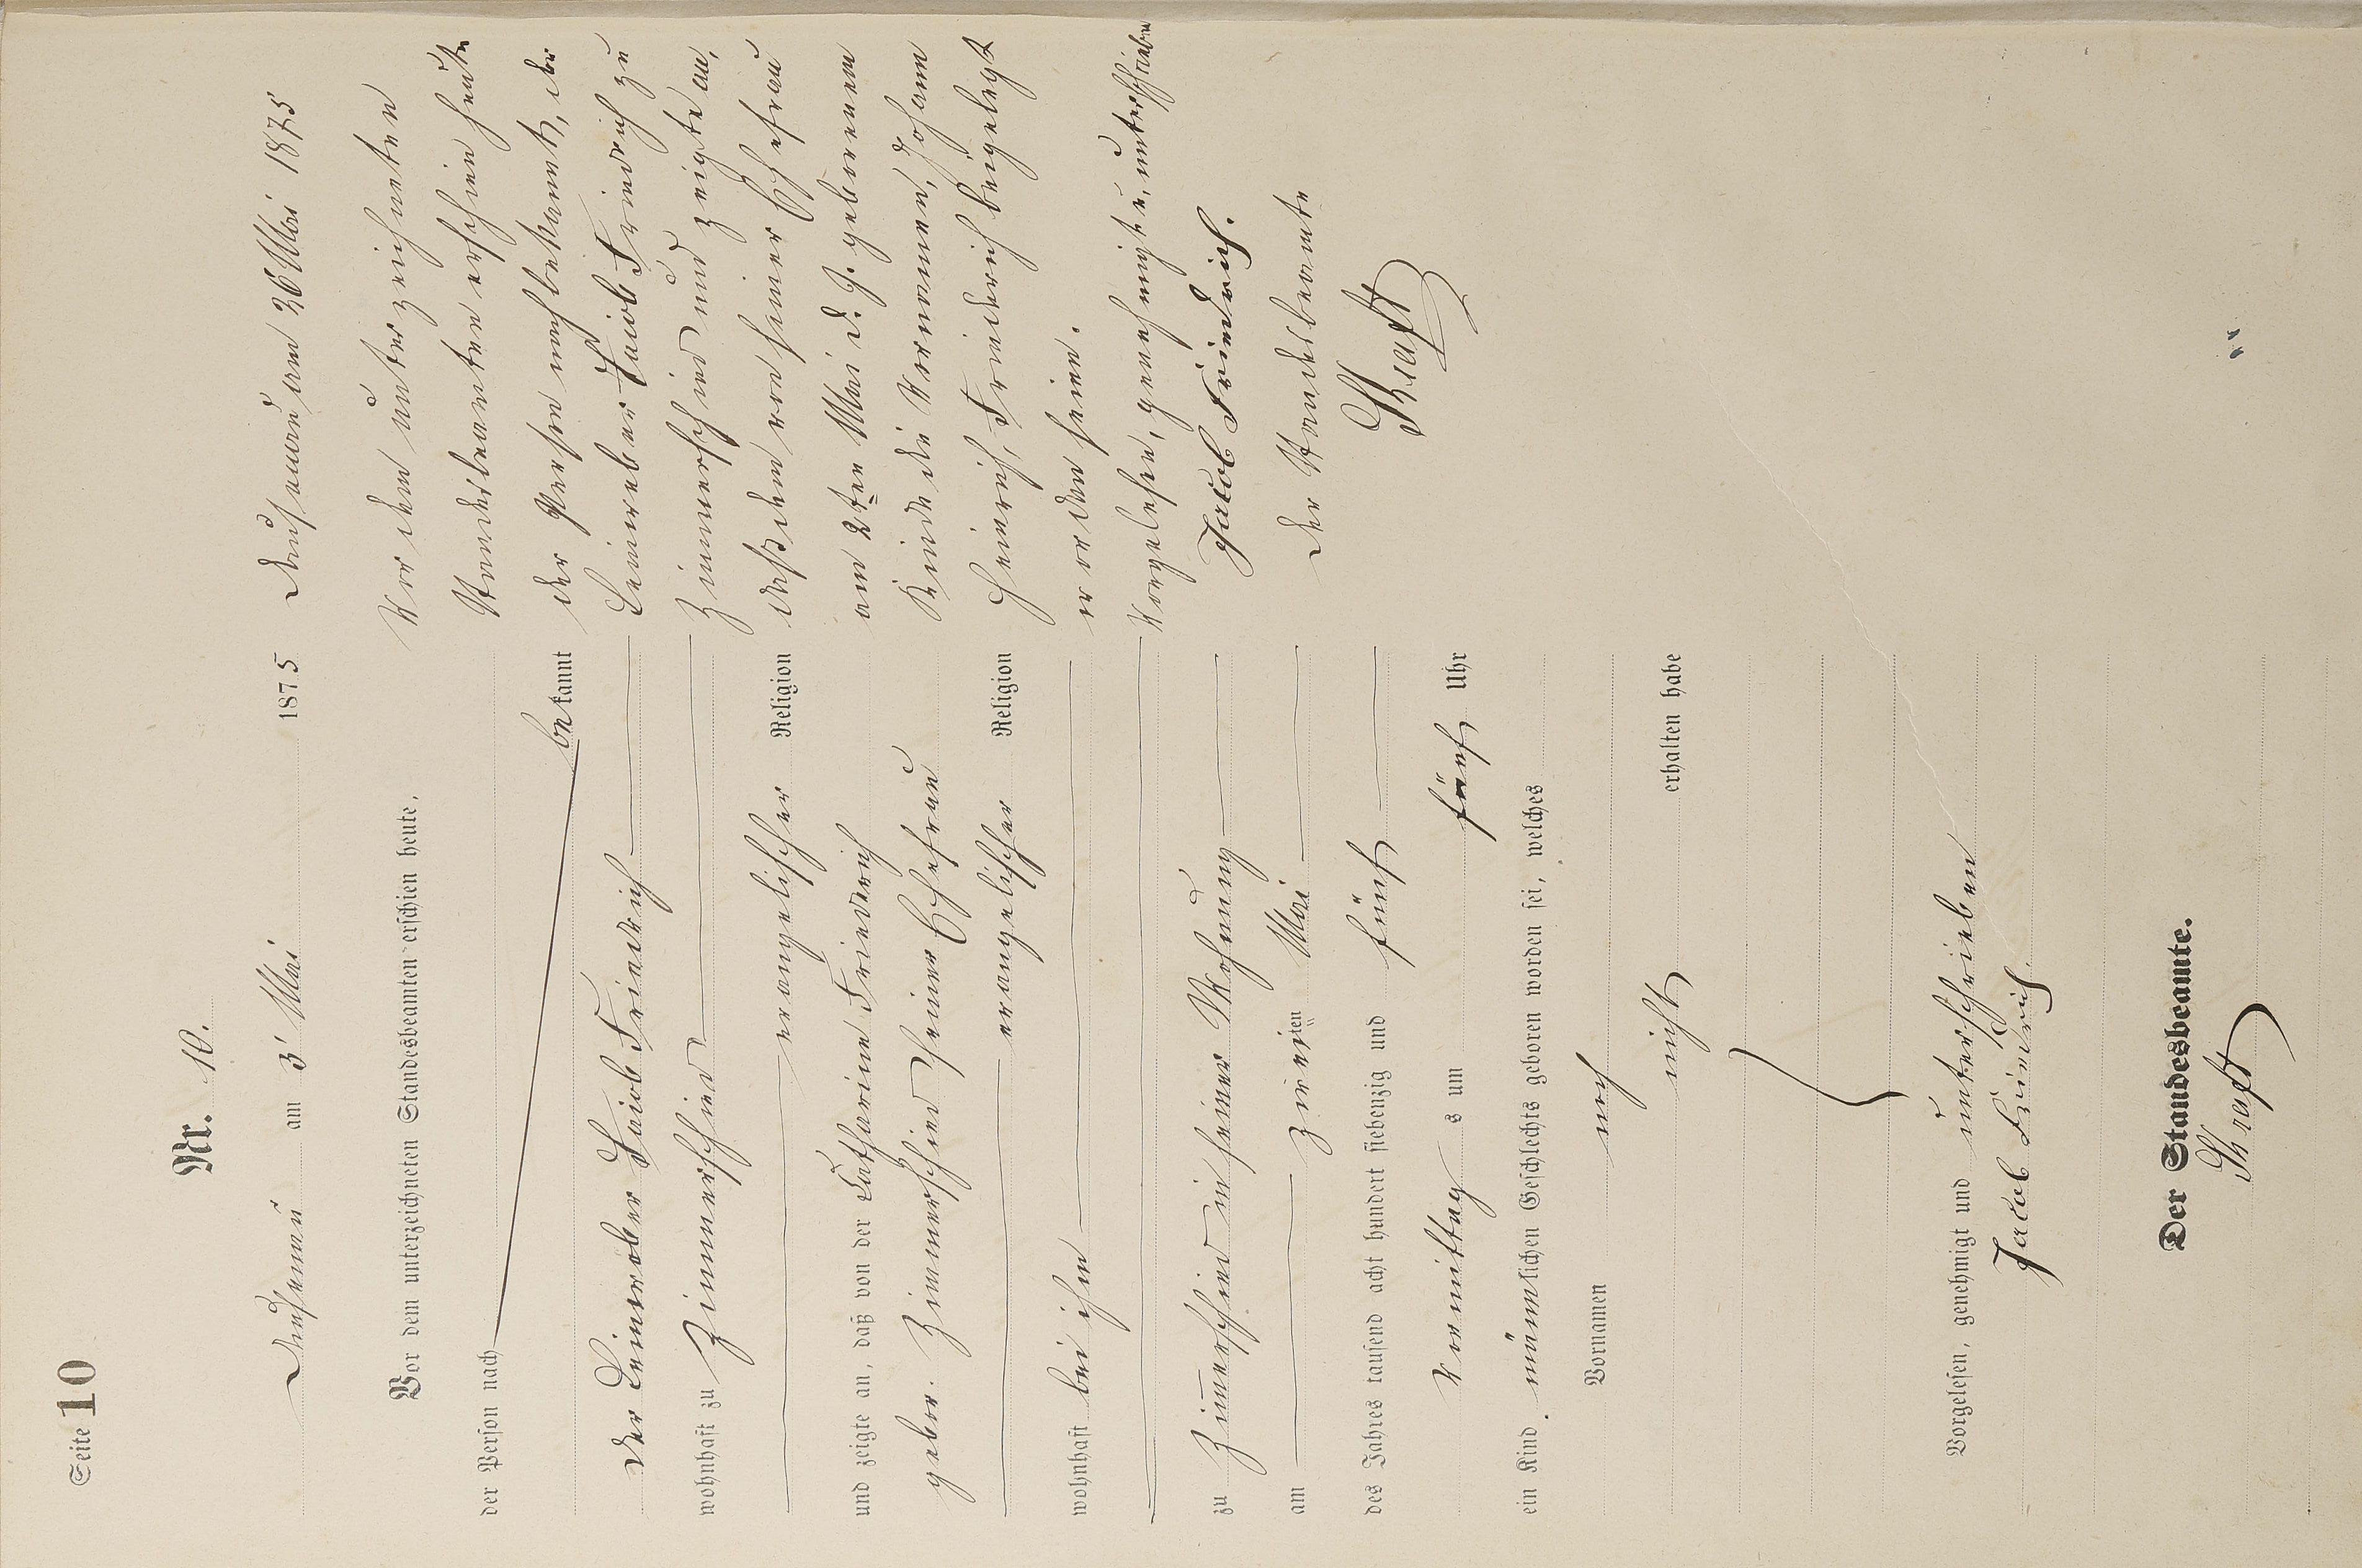 Seite 10
Nr. 10.
Dausenau am 3' Mai 1875
Vor dem unterzeichneten Standesbeamten erschien heute,
der Person nach
bekannt
der Leinweber Jacob Friedrich
wohnhaft zu Zimmerschied
evangelischer Religion
und zeigte an, daß von der Catharine Friederich
gebor. Zimmerschied seiner Ehefrau
evangelischer Religion
wohnhaft bei ihm
zu Zimmerschied in seiner Wohnung
am zweiten Mai
des Jahres tausend acht hundert siebenzig und fünf
Vormittags um fünf Uhr
ein Kind männlichen Geschlechts geboren worden sei, welches
Vornamen noch
nicht erhalten habe
Vorgelesen, genehmigt und unterschrieben
Jacob Friedrich.
Der Standesbeamte.
Kraft
Dausenau am 26 Mai 1875
Vor dem unterzeichneten
Standesbeamten erschien heute
der Person nach bekannt, der
Leinweber Jacob Friedrich zu
Zimmerschied und zeigte an,
daß dem von seiner Ehefrau
am 2ten Mai d. J. geborenem
Kinde die Vornamen, Johann
Heinrich, Friederich beigelegt
worden seien.
Vorgelesen, genehmigt u. unterschrieben
Jacob Friedrich.
der Standesbeamte
Kraft